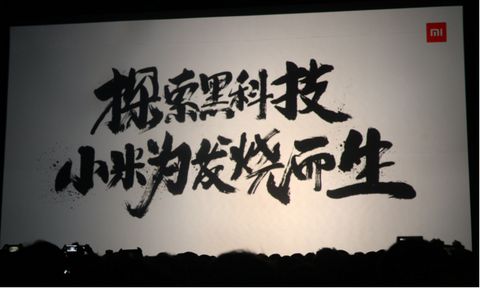 mi
探索黑科技
小米为发烧而生